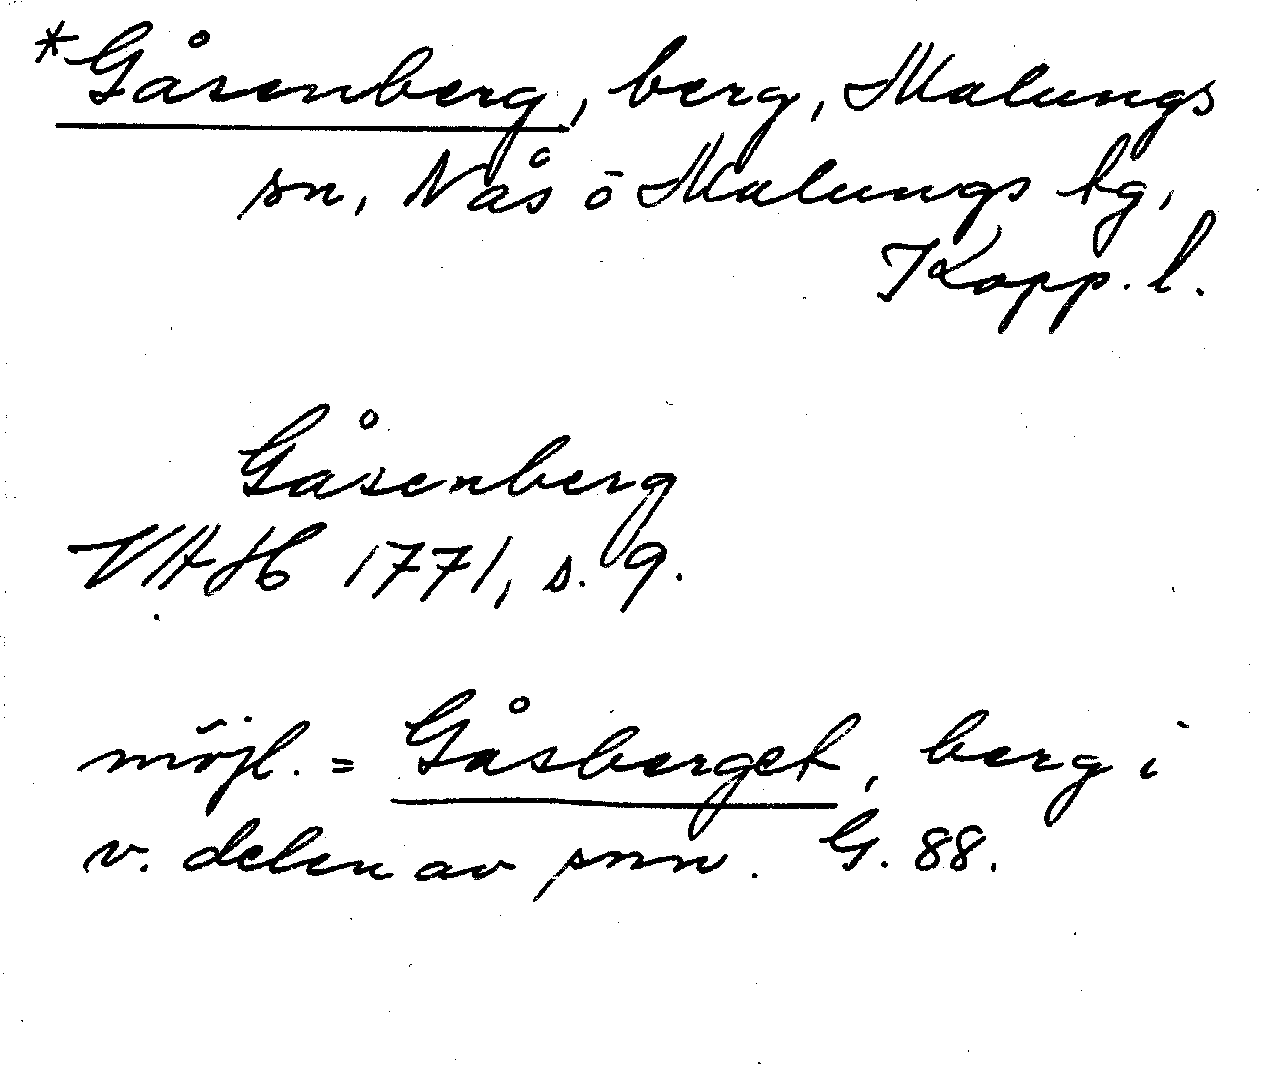 *Gåsenberg, berg, Malungs
sn, Nås o Malungs tg,
Kopp. l.
Gåsenberg
VAH 1771, s. 9.
möjl. = Gåsberget, berg i
v. delen av snn. G. 88.